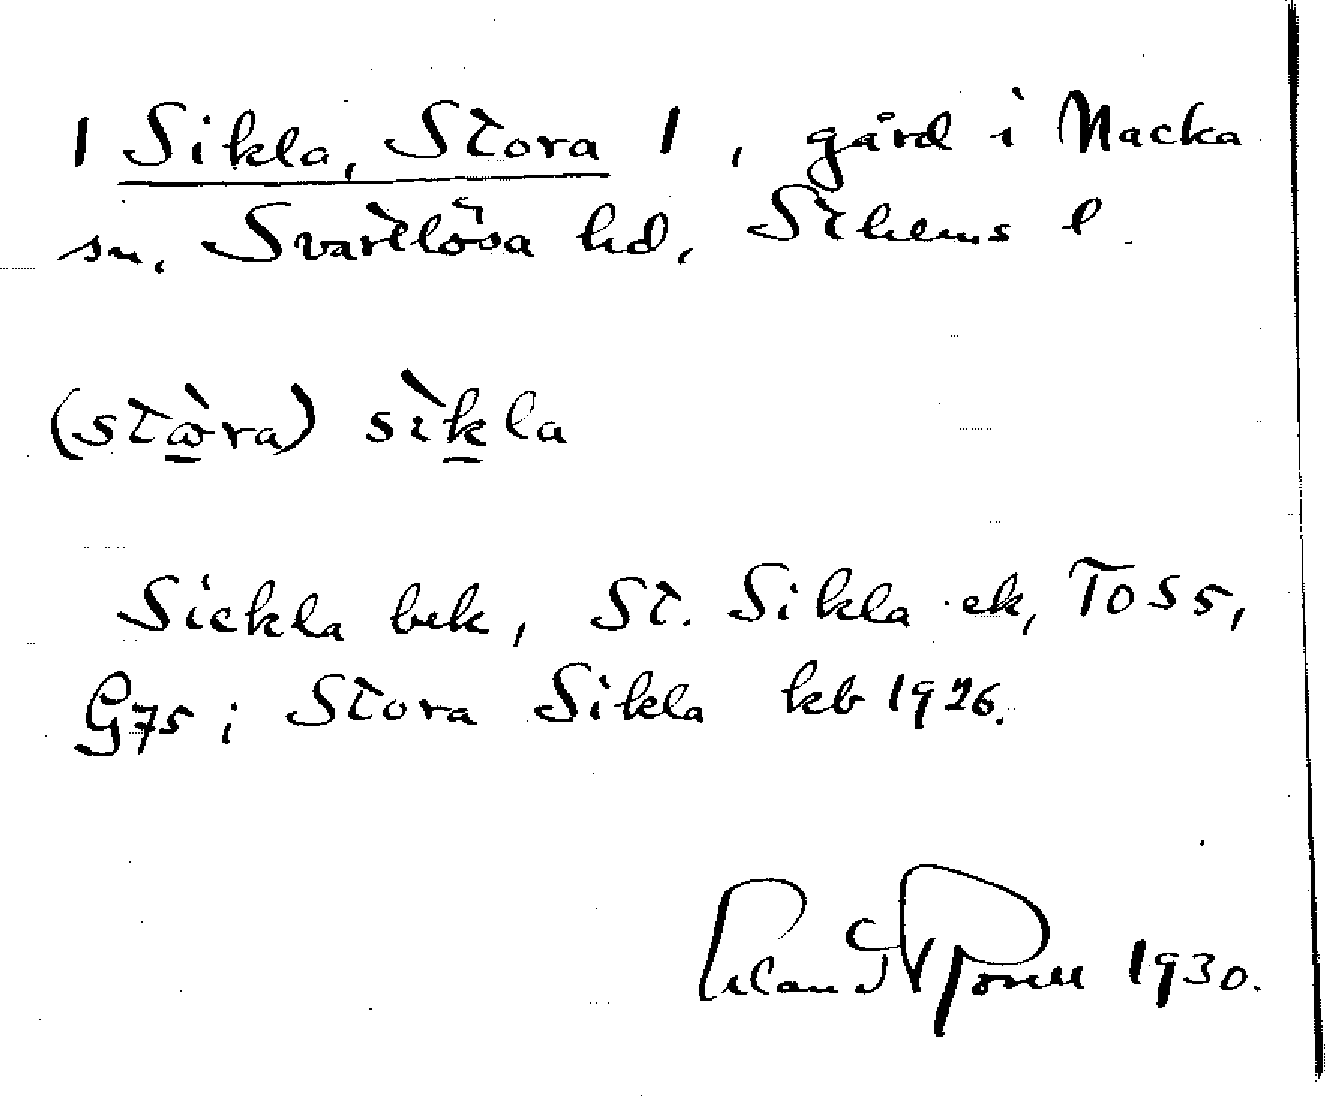 1 Sikla, Stora 1, gård i Nacka
sn, Svartlösa hd, Sthlms l.
(stὼra) sìkla
Sickla bek, St. Sikla ek, TO S5,
G75; Stora Sikla kb 1926.
1930.